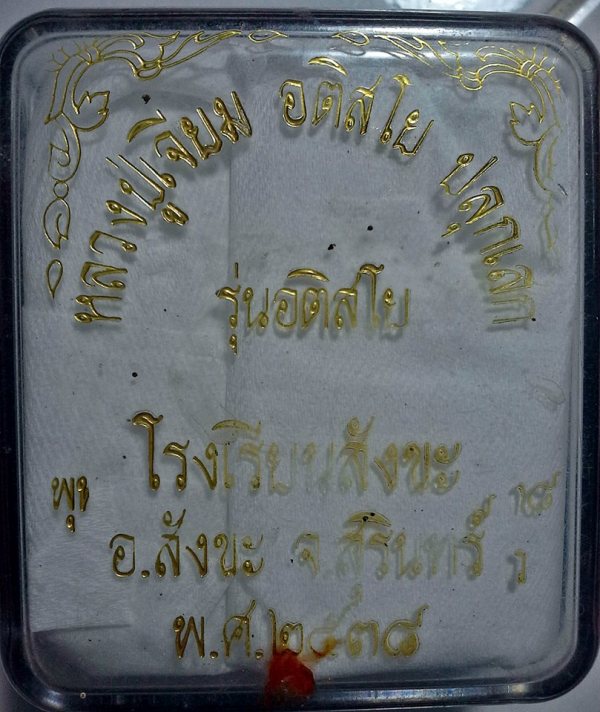 หลวงปู่เจียม อติสโย ปลุกเสก
รุ่นอติสโย
โรงเรียนสังขะ
อ.สังขะ จ.สุรินทร์
พ.ศ.๒๕๓๘